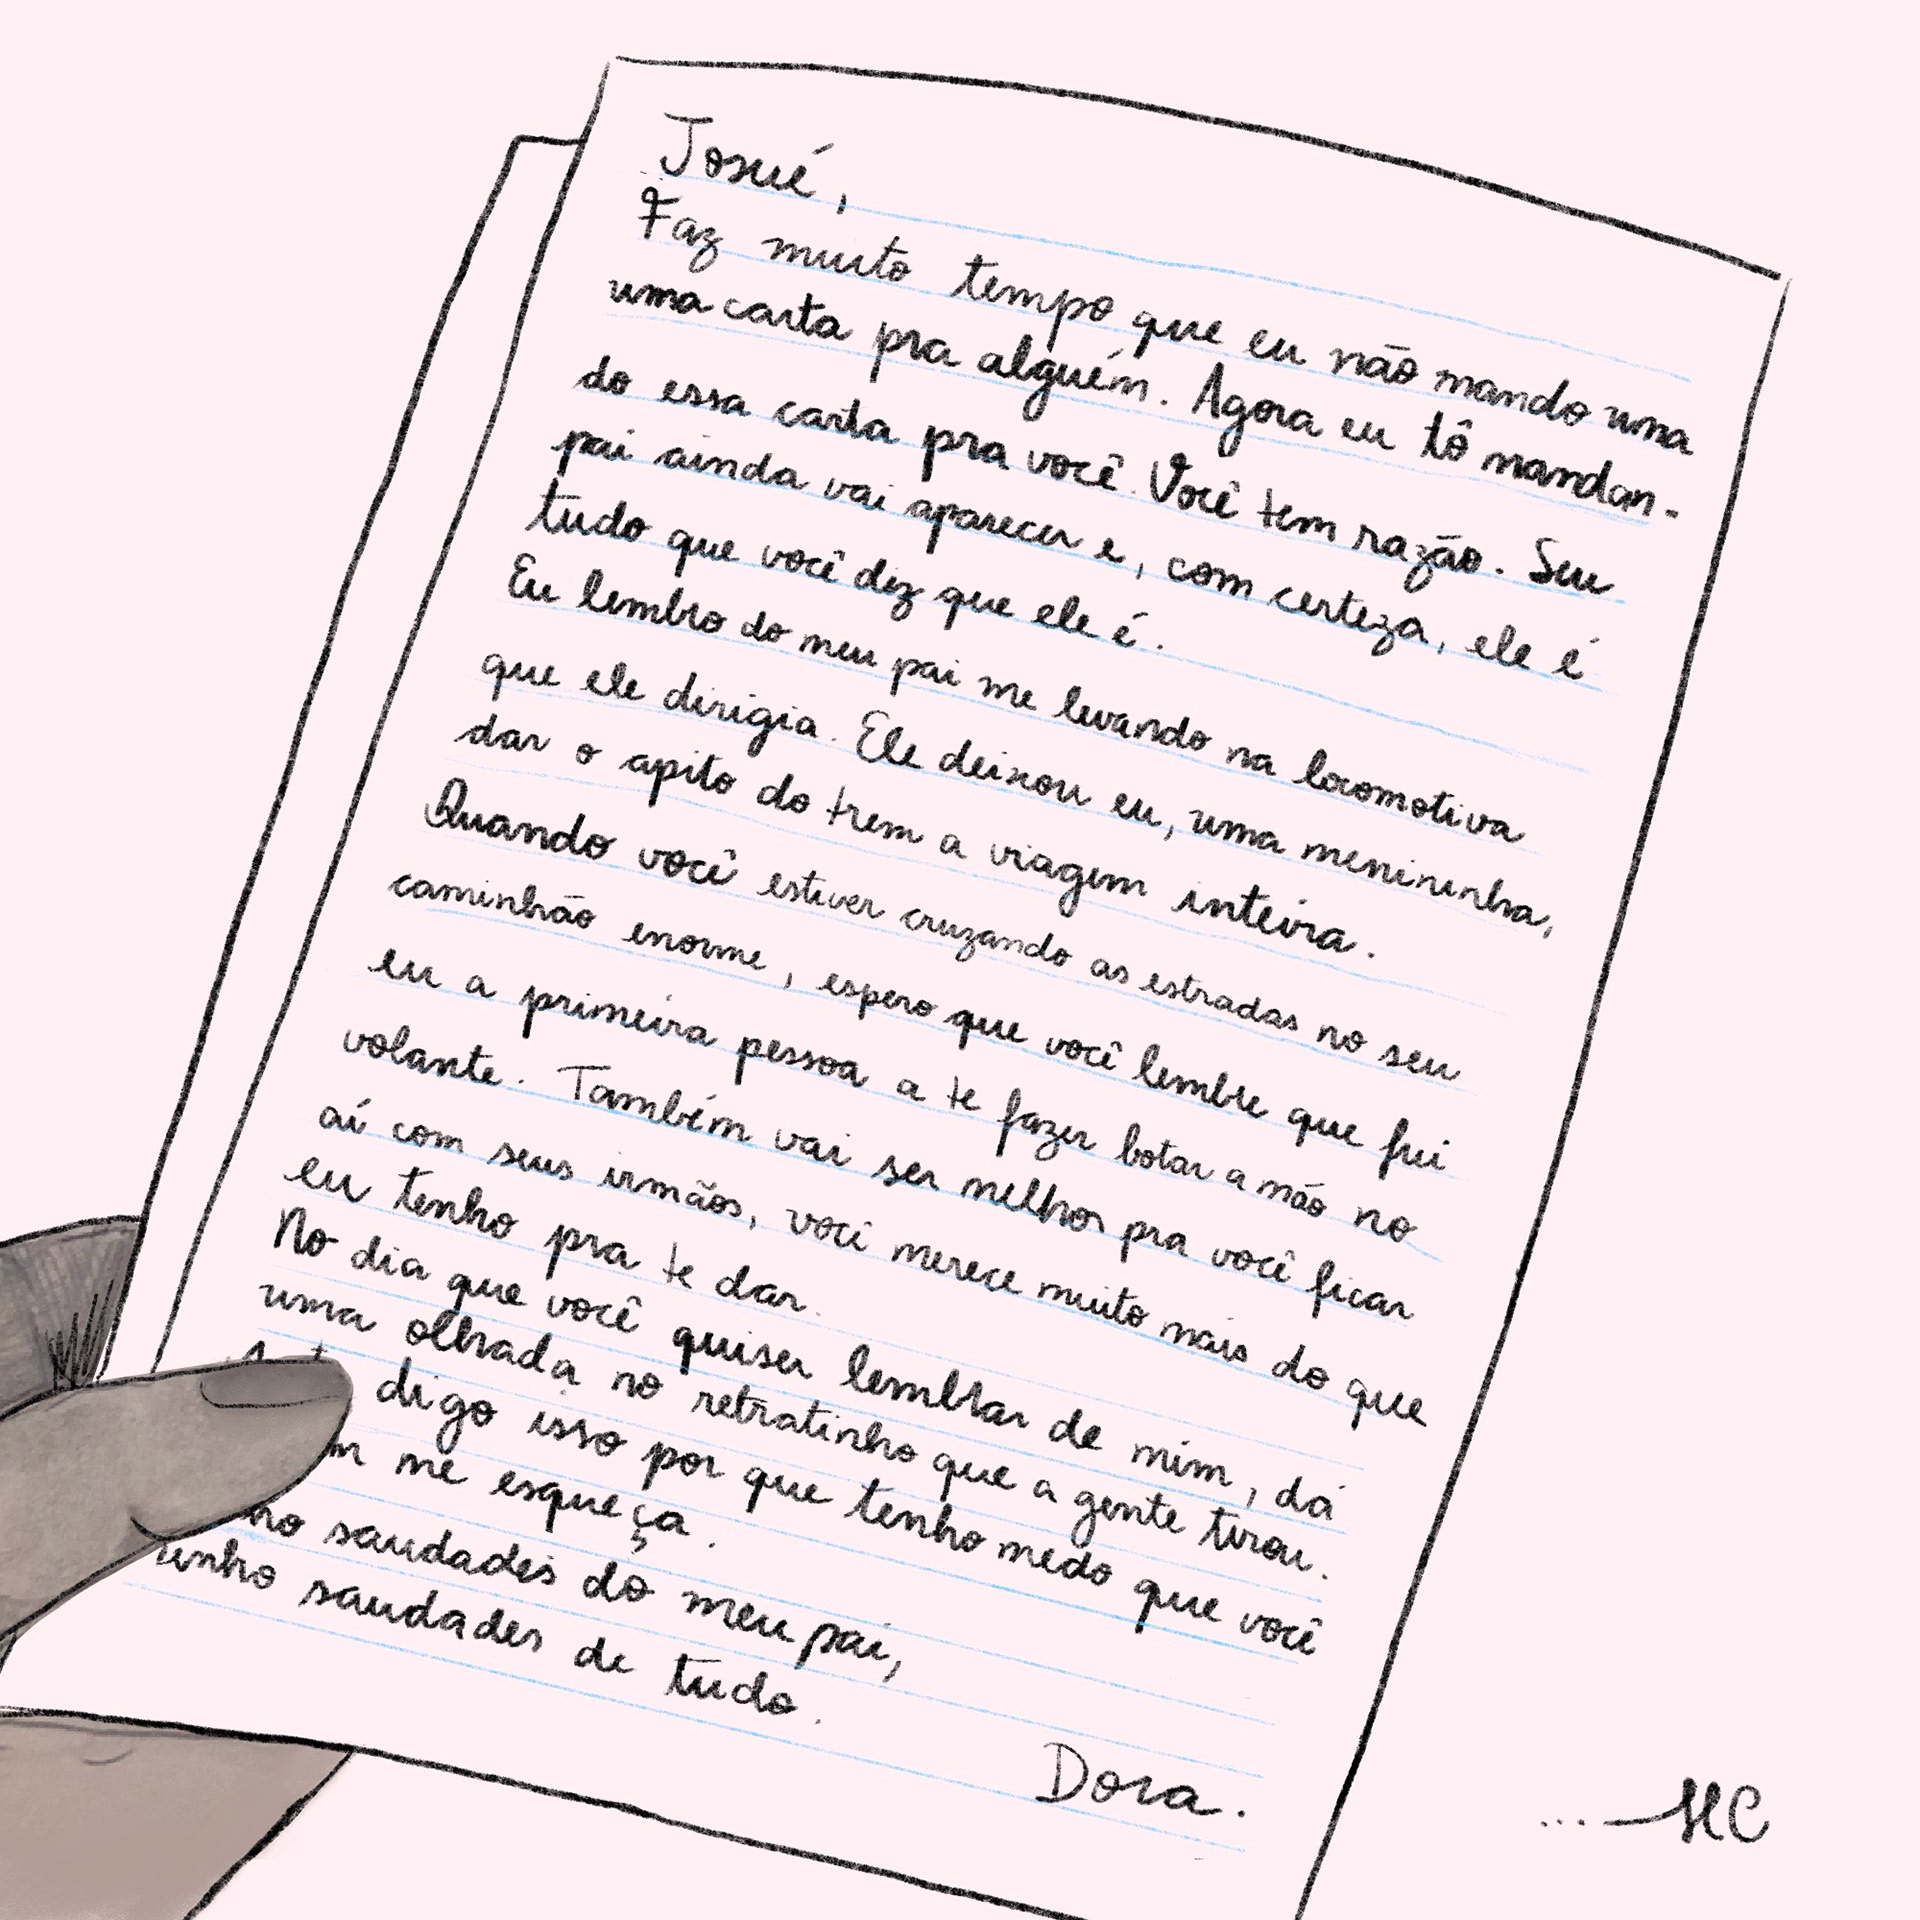 Josué,
Faz muito tempo que eu não mando uma
uma carta pra alguém. Agora eu tô mandan-
do essa carta pra você. Você tem razão. Seu
pai ainda vai aparecer e, com certeza, ele é
tudo que você diz que ele é.
Eu lembro do meu pai me levando na locomotiva
que ele dirigia. Ele deixou eu, uma menininha,
dar o apito do trem a viagem inteira.
Quando você estiver cruzando as estradas no seu
caminhão enorme, espero que você lembre que fui
eu a primeira pessoa a te fazer botar a mão no
volante. Também vai ser melhor pra você ficar
aí com seus irmãos, você merece muito mais do que
eu tenho pra te dar.
No dia que você quiser lembrar de mim, dá
uma olhada no retratinho que a gente tirou.
digo isso por que tenho medo que você
me esqueça.
saudades do meu pai,
saudades de tudo.
Dora.
... HC